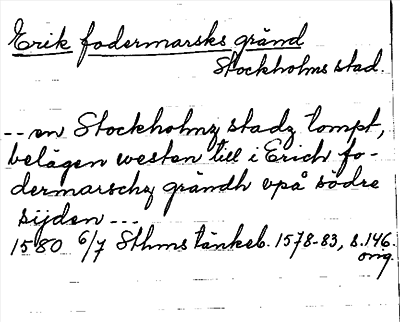 Erik fodermarsks gränd
Stockholms stad.
-- en Stockholmz stadz tompt,
belägen westan till i Erich fo-
dermarschz grändh vpå södre
sijden ---
1580 6/7 Sthms tänkeb. 1578-83, s. 146.
orig.